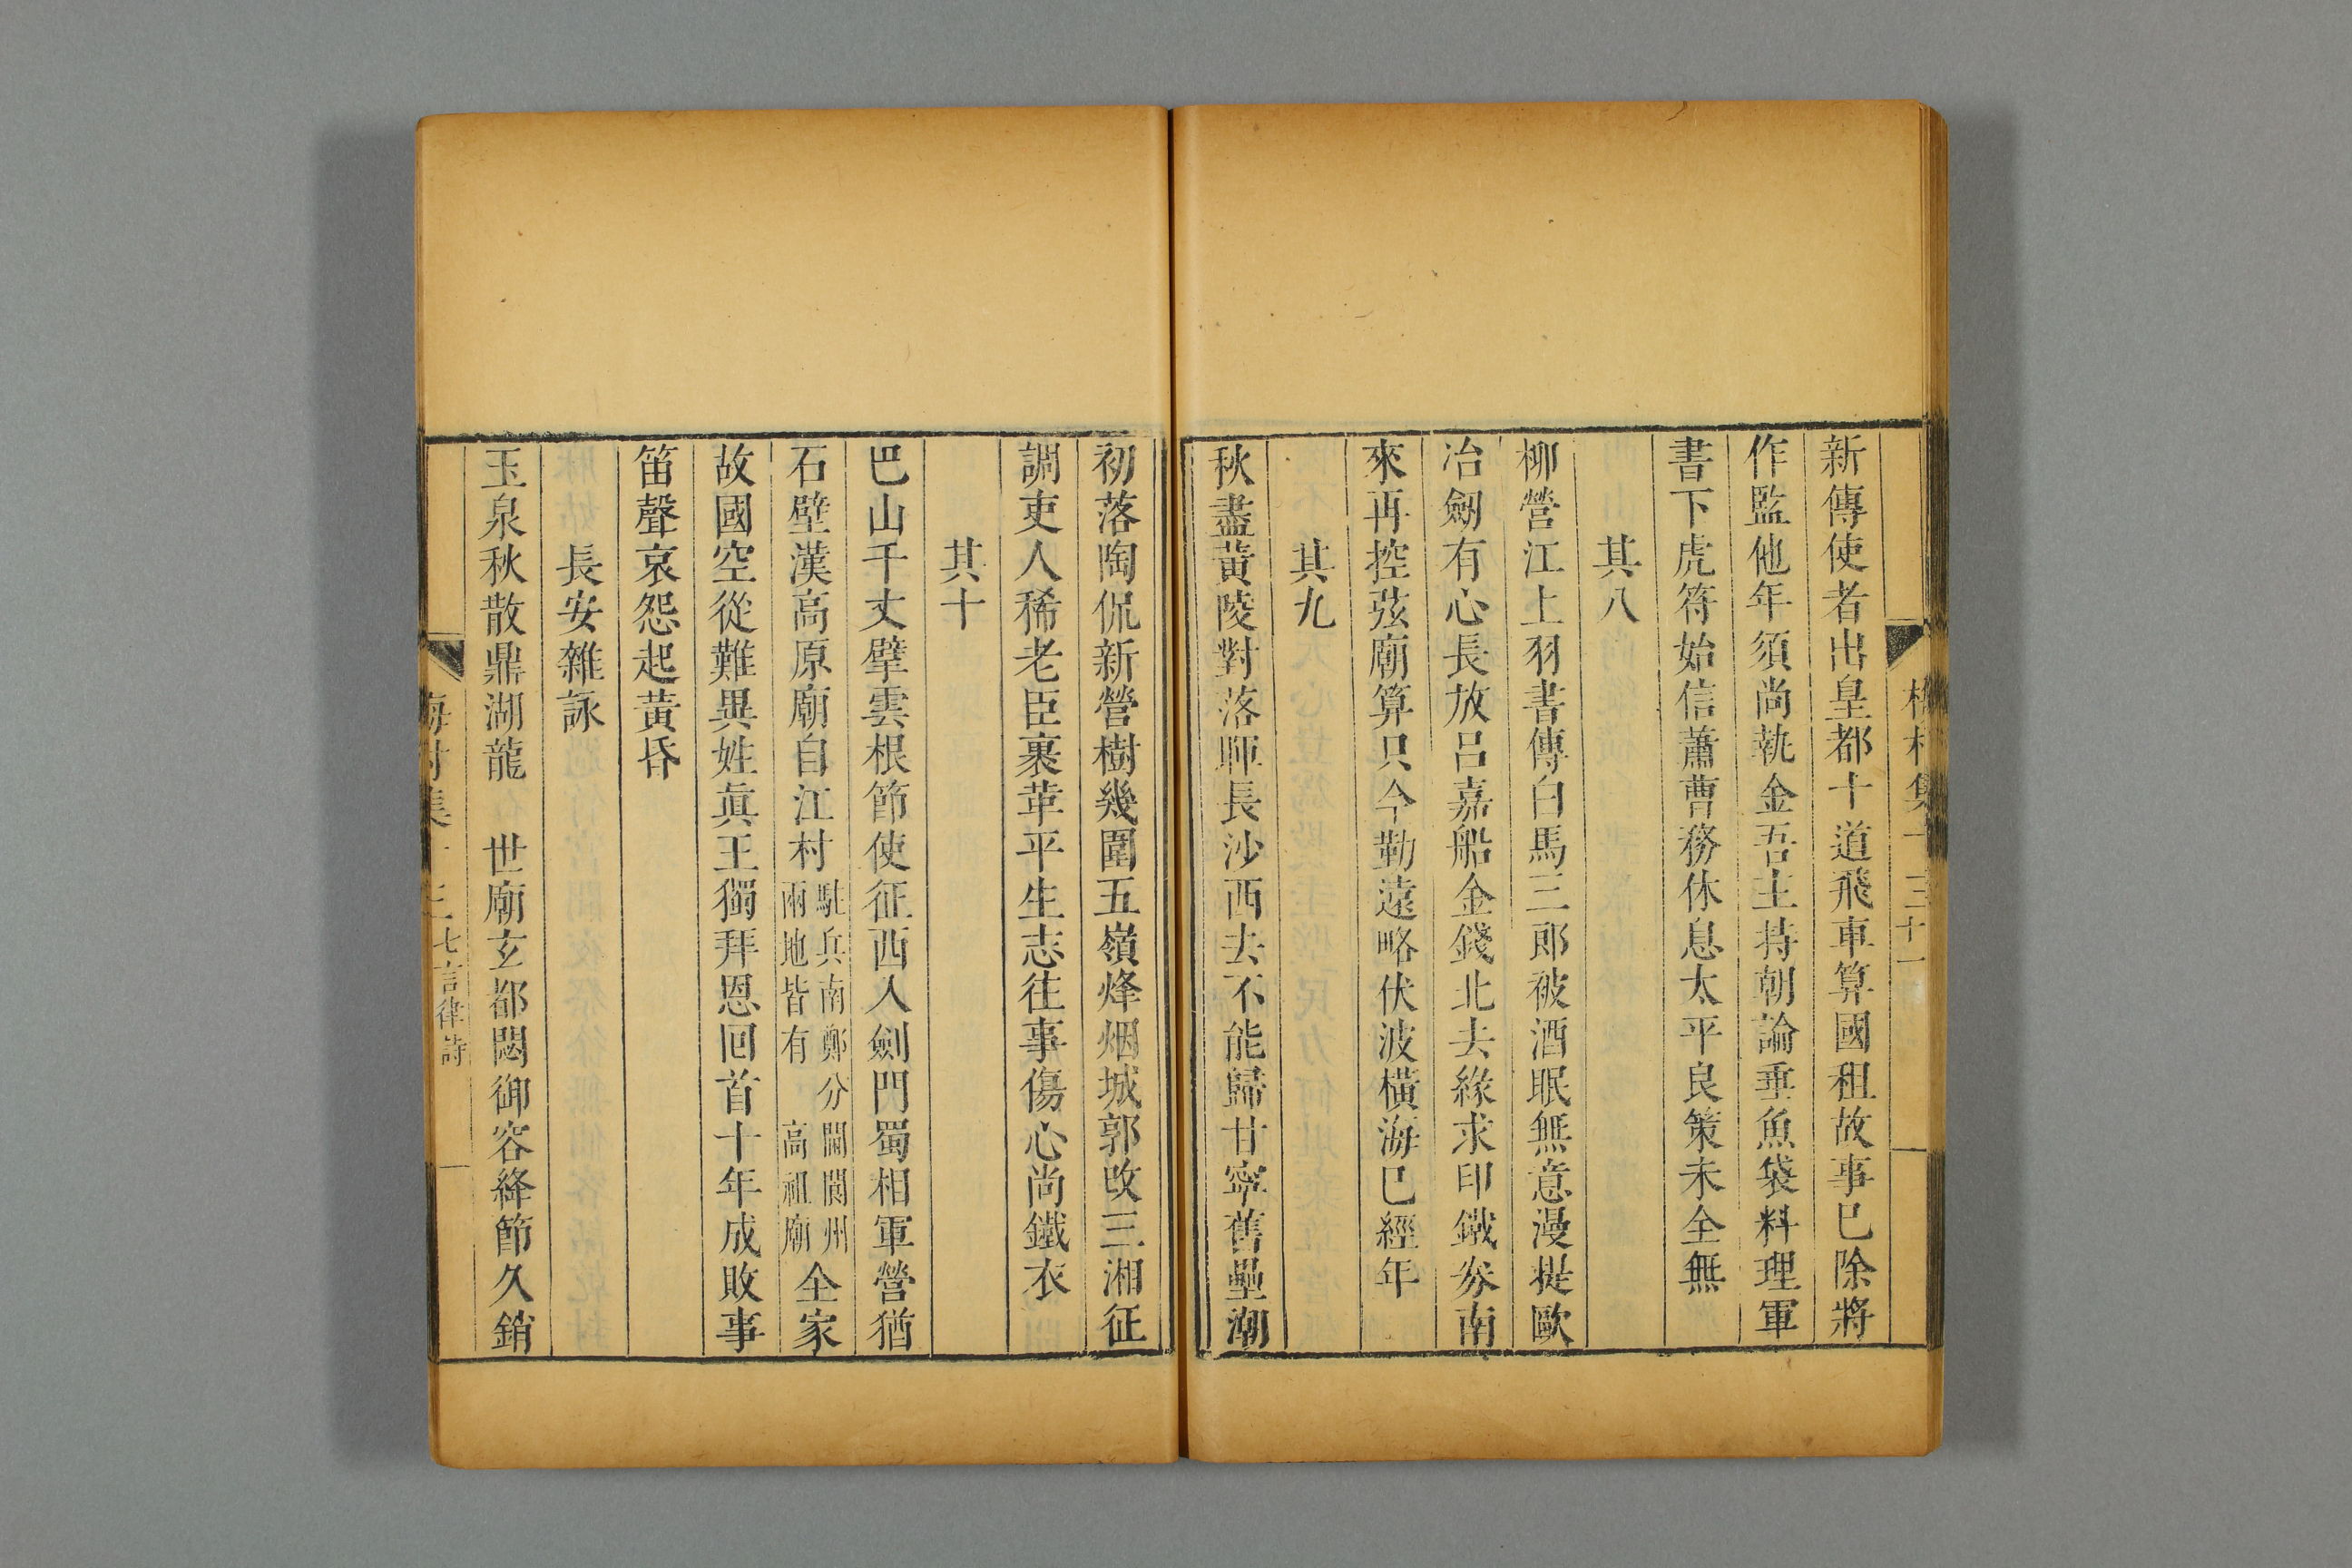 新傳使者出皇都十道飛車算國租故事已除將
作監他年須尚執金吾主持朝論垂魚袋料理軍
書下虎符始信蕭曹務休息太平良策未全無
其八
柳營江上羽書傳白馬三郎被酒眠無意漫提歐
冶劒有心長放呂嘉船金錢北去緣求印鐵券南
來再控弦廟算只今勤遠略伏波橫海已經年
其九
秋盡黃陵對落暉長沙西去不能歸甘寧舊壘潮
初落陶侃新營樹幾圍五嶺烽烟城郭改三湘征
調吏人稀老臣裹革平生志往事傷心尚鐵衣
其十
巴山千丈擘雲根節使征西入劍門蜀相軍營猶
石壁漢高原廟自江村駐兵南鄭分閫閬州兩地皆有 高祖廟全家
故國空從難異姓眞王獨拜恩回首十年成敗事
笛聲哀怨起黃昏
長安雜詠
玉泉秋散鼎湖龍 世廟玄都閟御容絳節久銷
七言律詩